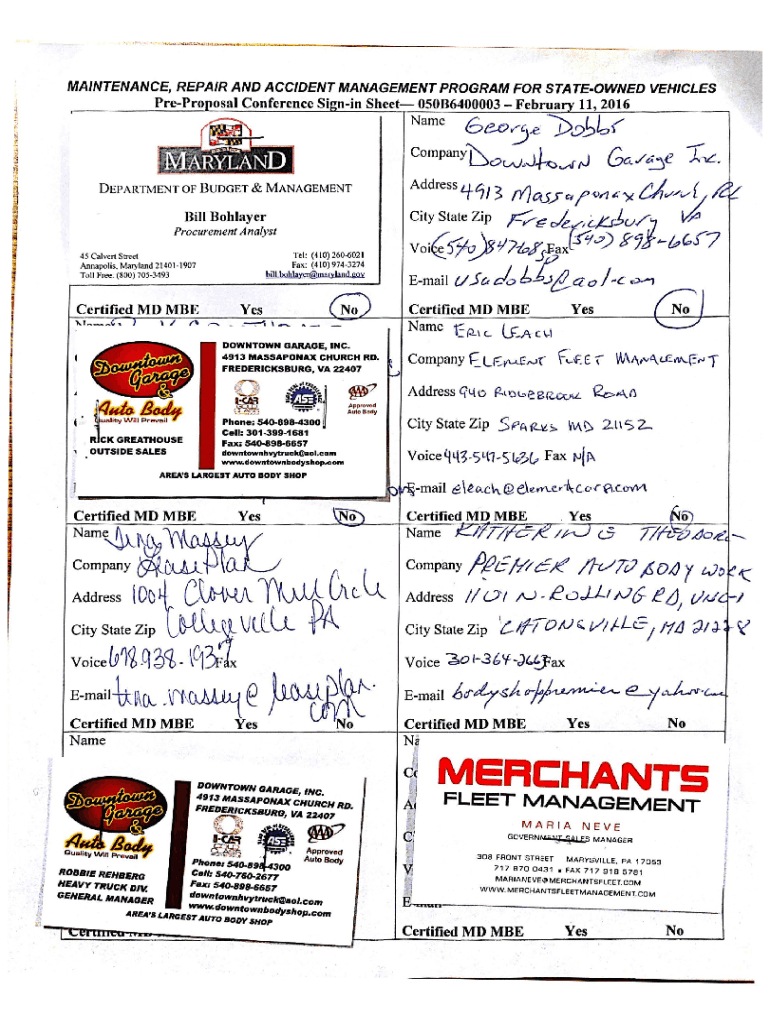 MAINTENANCE, REPAIR AND ACCIDENT MANAGEMENT PROGRAM FOR STATE-OWNED VEHICLES
Pre-Proposal Conference Sign-in Sheet— 050B6400003 – February 11, 2016
MARYLAND
DEPARTMENT OF BUDGET & MANAGEMENT
Bill Bohlayer
Procurement Analyst
45 Calvert Street
Annapolis, Maryland 21401-1907
Toll Free: (800) 705-3493
Tel: (410) 260-6021
Fax: (410) 974-3274
bill.bohlayer@maryland.gov
Certified MD MBE Yes No
Name George Dobbs
Company Downtown Garage Inc.
Address 4913 Massaponax Church Rd
City State Zip Fredericksburg VA
Voice (540) 847 Fax (540) 898-6657
E-mail usadobbs@aol.com
Certified MD MBE Yes No
Downtown Garage & Auto Body
Quality Will Prevail
RICK GREATHOUSE
OUTSIDE SALES
DOWNTOWN GARAGE, INC.
4913 MASSAPONAX CHURCH RD.
FREDERICKSBURG, VA 22407
I-CAR
ASE
AAA
Approved
Auto Body
Phone: 540-898-4300
Cell: 301-399-1681
Fax: 540-898-6657
downtownhvytruck@aol.com
www.downtownbodyshop.com
AREA'S LARGEST AUTO BODY SHOP
Certified MD MBE Yes No
Name ERIC LEACH
Company ELEMENT FLEET MANAGEMENT
Address 940 RIDGEBROOK ROAD
City State Zip SPARKS MD 21152
Voice 443-547-5636 Fax N/A
E-mail eleach@elementcorp.com
Certified MD MBE Yes No
Name Tina Massey
Company LeasePlan
Address 1004 Clover Mill Circle
City State Zip Collegeville PA
Voice 678-938-1937 Fax
E-mail tina.massey@leaseplan.com
Certified MD MBE Yes No
Name KATHERINE THEODORE
Company PREMIER AUTO BODY WORK
Address 1101 N. ROLLING RD,
City State Zip CATONSVILLE, MD 21228
Voice 301-364-2663 Fax
E-mail bodyshoppremier@yahoo.com
Certified MD MBE Yes No
Name
Downtown Garage & Auto Body
Quality Will Prevail
ROBBIE REHBERG
HEAVY TRUCK DIV.
GENERAL MANAGER
DOWNTOWN GARAGE, INC.
4913 MASSAPONAX CHURCH RD.
FREDERICKSBURG, VA 22407
I-CAR
ASE
AAA
Approved
Auto Body
Phone: 540-898-4300
Cell: 540-760-2677
Fax: 540-898-6657
downtownhvytruck@aol.com
www.downtownbodyshop.com
AREA'S LARGEST AUTO BODY SHOP
MERCHANTS
FLEET MANAGEMENT
MARIA NEVE
GOVERNMENT SALES MANAGER
308 FRONT STREET MARYSVILLE, PA 17053
717 870 0431 FAX 717 918 5781
MARIANEVE@MERCHANTSFLEET.COM
WWW.MERCHANTSFLEETMANAGEMENT.COM
Certified MD MBE Yes No